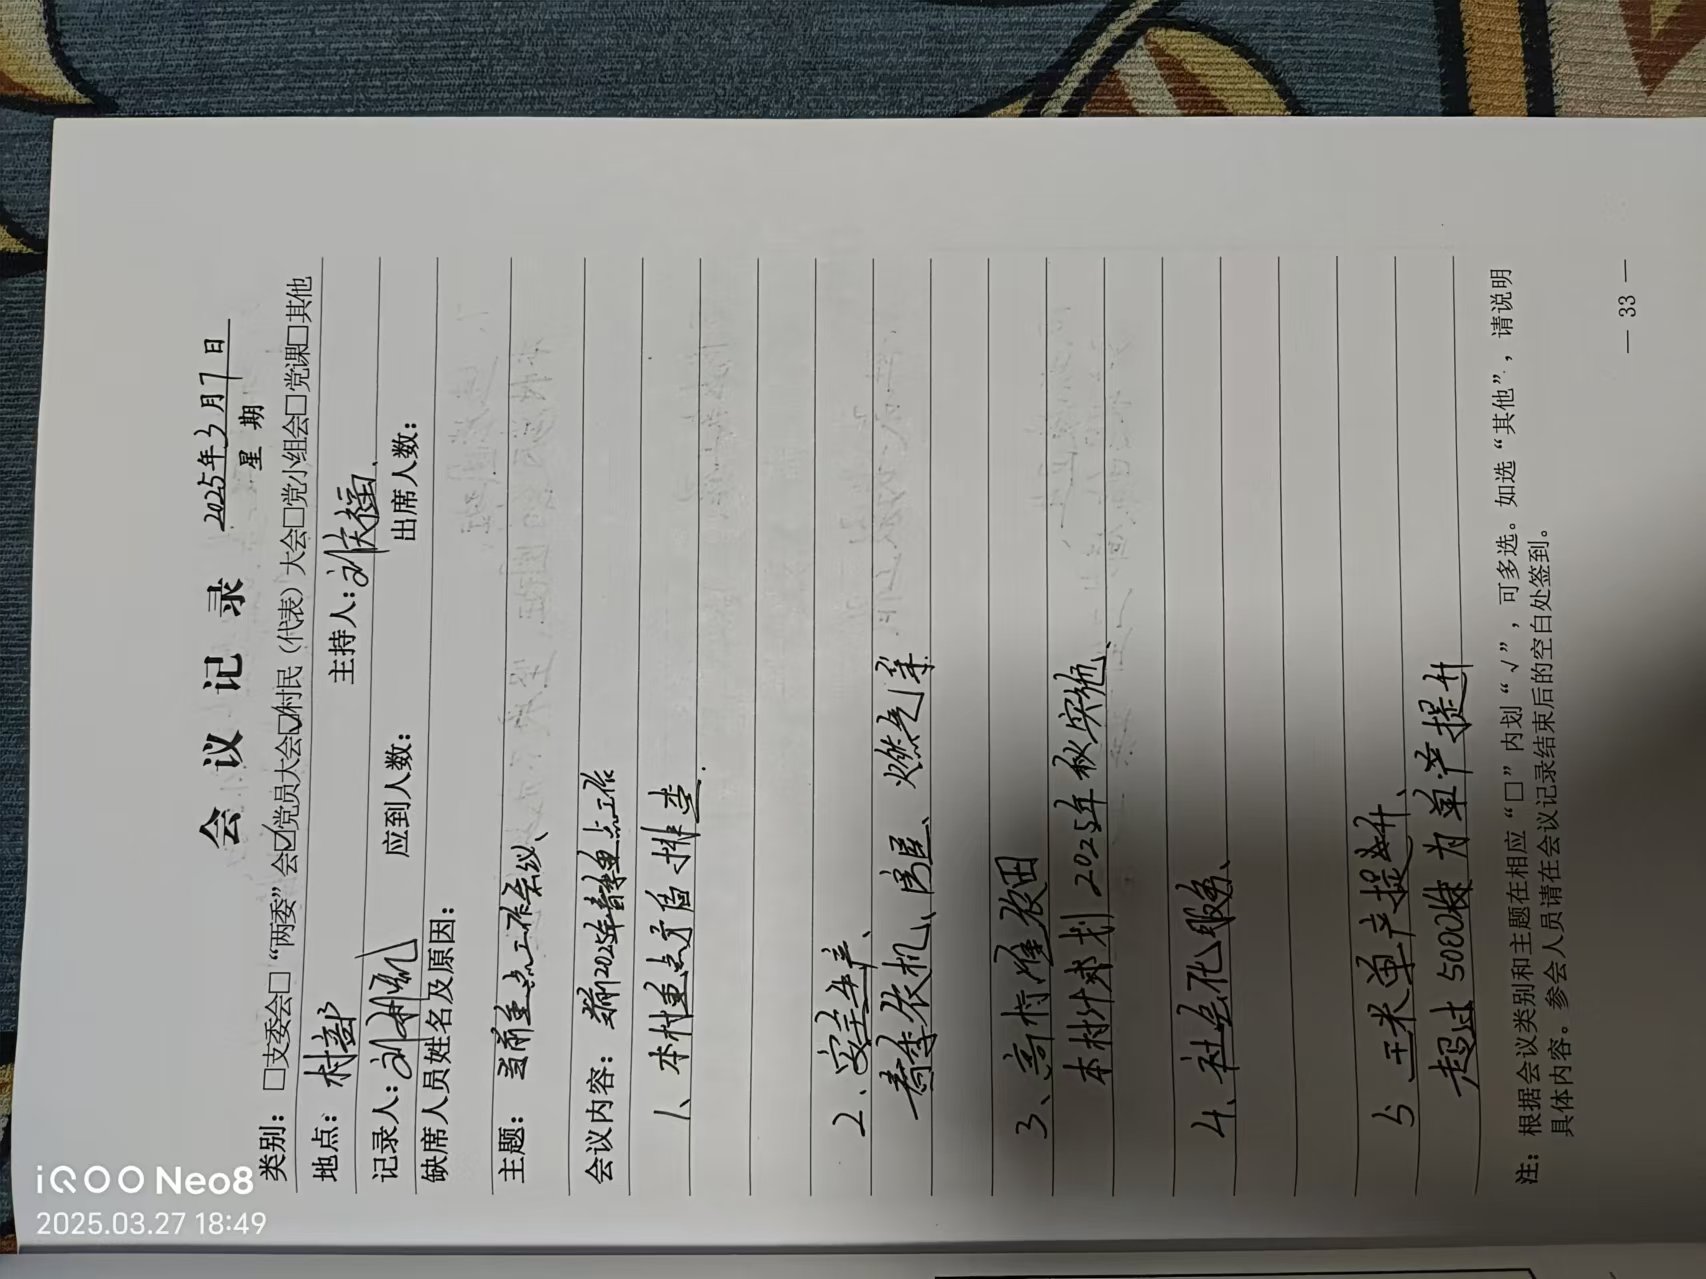 会议记录
2025年3月7日
星期
类别：□支委会□“两委”会☑党员大会☑村民（代表）大会□党小组会□党课□其他
地点：村部 主持人：
记录人： 应到人数： 出席人数：
缺席人员姓名及原因：
主题：当前重点工作会议、
会议内容：当前2025年春季重点工作
1、本村重点矛盾排查.
2、安全生产、
春季农机、房屋、燃气等
3、高标准农田
本村计划2025年秋实施、
4、社会化服务、
5、玉米单产提升、
超过5000株为单产提升
注：根据会议类别和主题在相应“□”内划“√”，可多选。如选“其他”，请说明
具体内容。参会人员请在会议记录结束后的空白处签到。
— 33 —
iQOO Neo8
2025.03.27 18:49